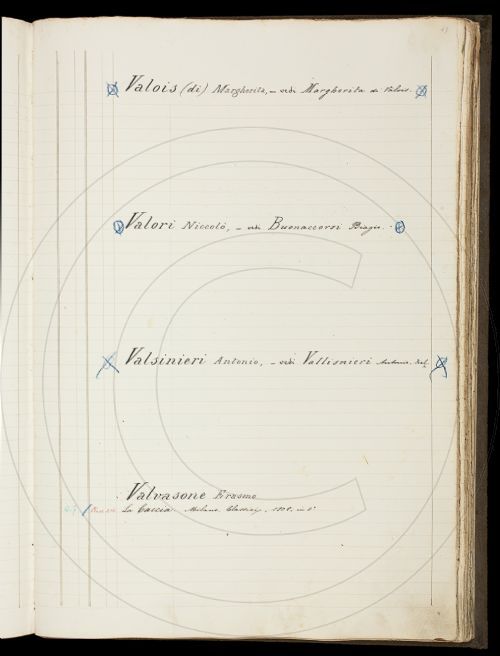 Valois (di) Margherita, - vedi Margherita di Valois.
Valori Niccolò, - vedi Buonaccorsi Biagio.
Valsinieri Antonio, - vedi Vallisnieri Antonio,
Valvasone Erasmo
La Caccia. Milano, Classici, 1808, in 8°